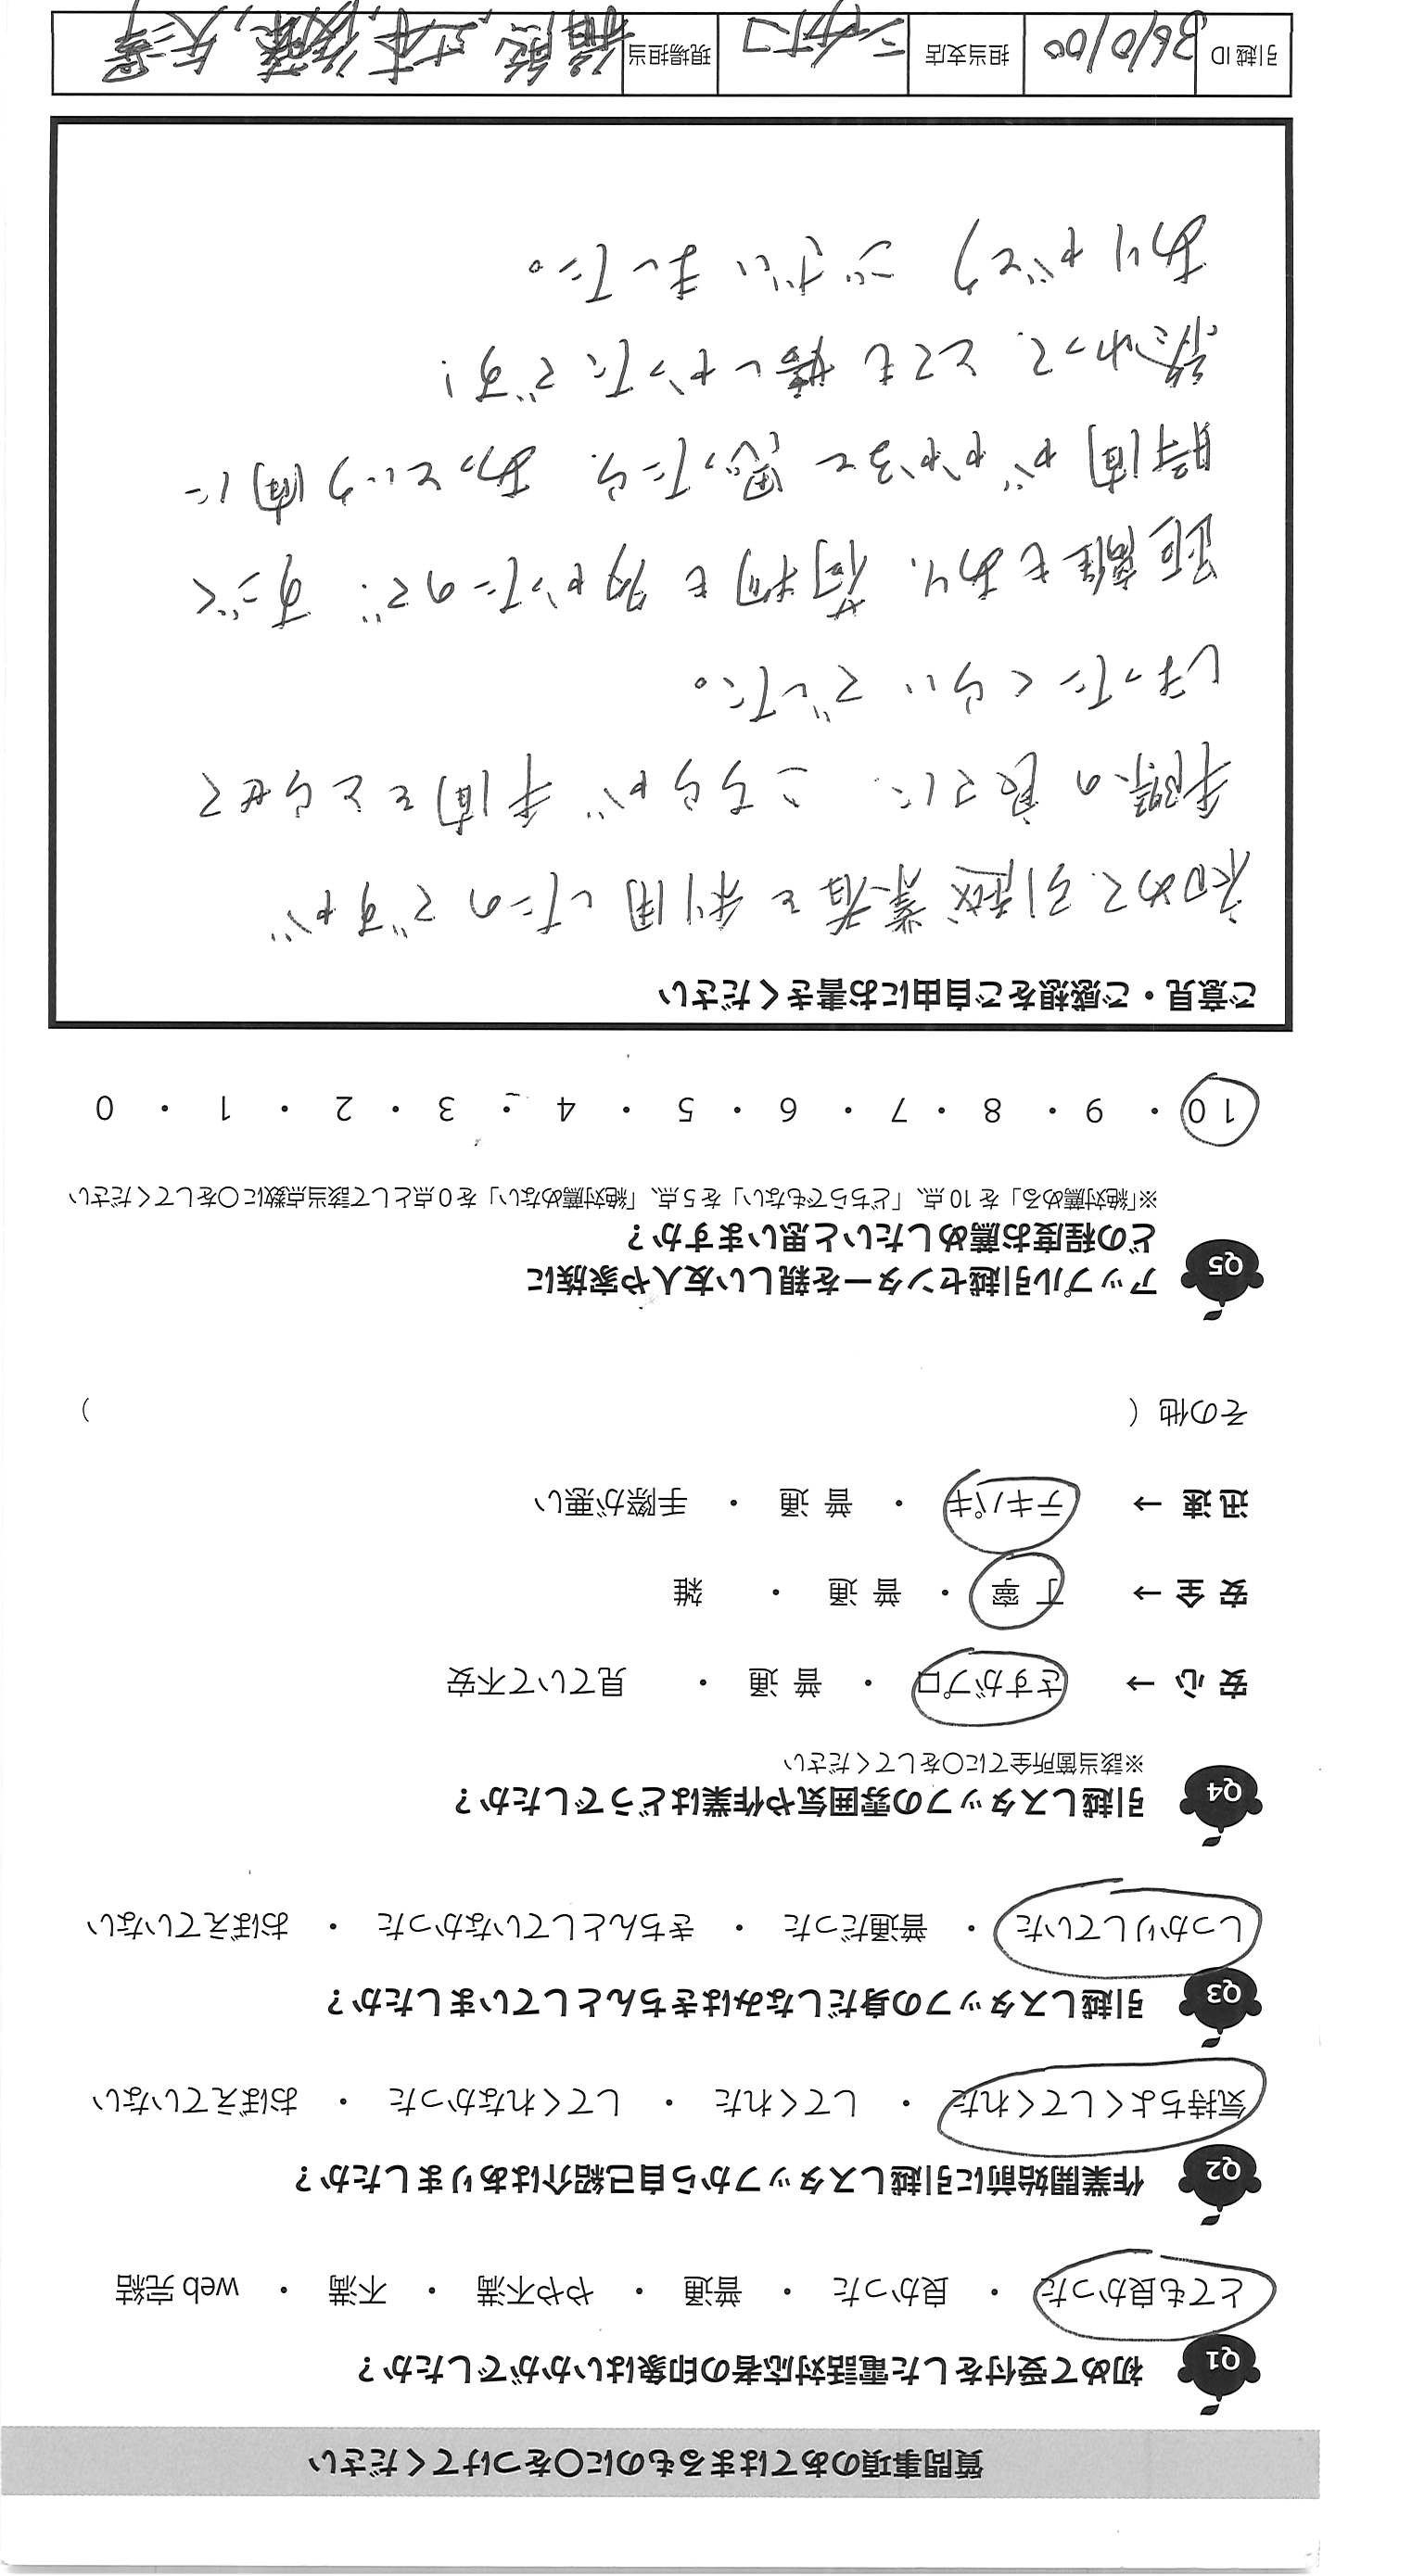 質問事項のあてはまるものに〇をつけてください
Q1 初めて受付をした電話対応者の印象はいかがでしたか？
とても良かった ・ 良かった ・ 普通 ・ やや不満 ・ 不満 ・ web 完結
Q2 作業開始前に引越しスタッフから自己紹介はありましたか？
気持ちよくしてくれた ・ してくれた ・ してくれなかった ・ おぼえていない
Q3 引越しスタッフの身だしなみはきちんとしていましたか？
しっかりしていた ・ 普通だった ・ きちんとしていなかった ・ おぼえていない
Q4 引越しスタッフの雰囲気や作業はどうでしたか？
※該当箇所全てに〇をしてください
安心 → さすがプロ ・ 普通 ・ 見ていて不安
安全 → 丁寧 ・ 普通 ・ 雑
迅速 → テキパキ ・ 普通 ・ 手際が悪い
その他（ ）
Q5 アップル引越センターを親しい友人や家族に
どの程度お薦めしたいと思いますか？
※「絶対薦める」を10点、「どちらでもない」を5点、「絶対薦めない」を0点として該当点数に〇をしてください
10 ・ 9 ・ 8 ・ 7 ・ 6 ・ 5 ・ 4 ・ 3 ・ 2 ・ 1 ・ 0
ご意見・ご感想をご自由にお書きください
初めて引越業者を利用したのですが
手際の良さに、こちらが手間をとらせて
しまったくらいでした。
距離もあり、荷物も多かったので、すごく
時間がかかると思ったら、あっという間に
終わって、とても嬉しかったです!
ありがとうございました。
引越ID 3610100 担当支店 現場担当 後藤,